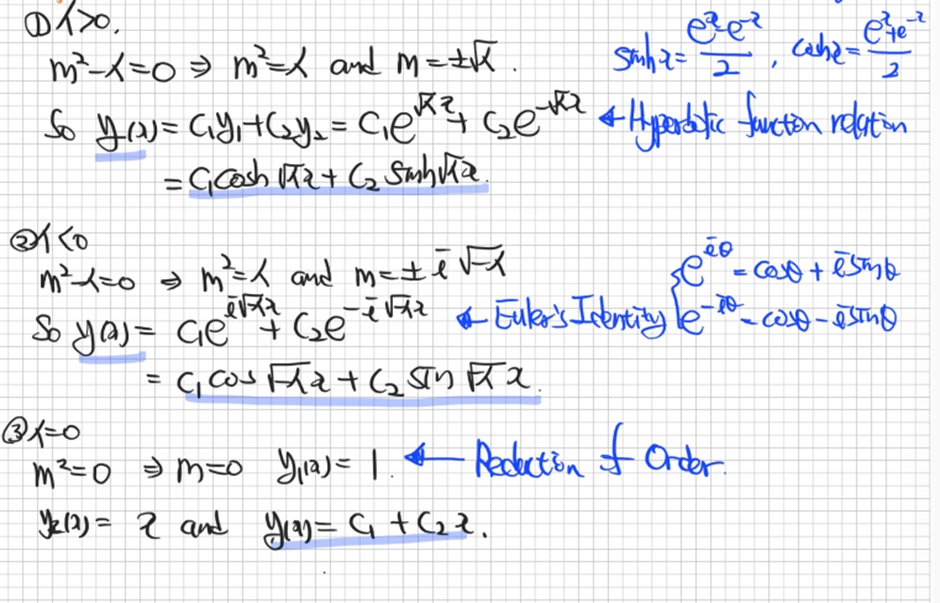 ① λ>0.
m²-λ=0 ⇒ m²=λ and m=±√λ.
sinhx = (eˣ-e⁻ˣ)/2 , coshx = (eˣ+e⁻ˣ)/2
So y(x)=C₁y₁+C₂y₂=C₁e^{√λx}+C₂e^{-√λx} ← Hyperbolic function relation
=C₁cosh√λx+C₂sinh√λx.
② λ<0
m²-λ=0 ⇒ m²=λ and m=±i√-λ
So y(x)= C₁e^{i√-λx}+C₂e^{-i√-λx} ← Euler's Identity { e^{iθ}=cosθ+isinθ
e^{-iθ}=cosθ-isinθ
= C₁cos√-λx+C₂sin√-λx.
③ λ=0
m²=0 ⇒ m=0 y₁(x)=1. ← Reduction of Order.
y₂(x)= x and y(x)=C₁+C₂x.